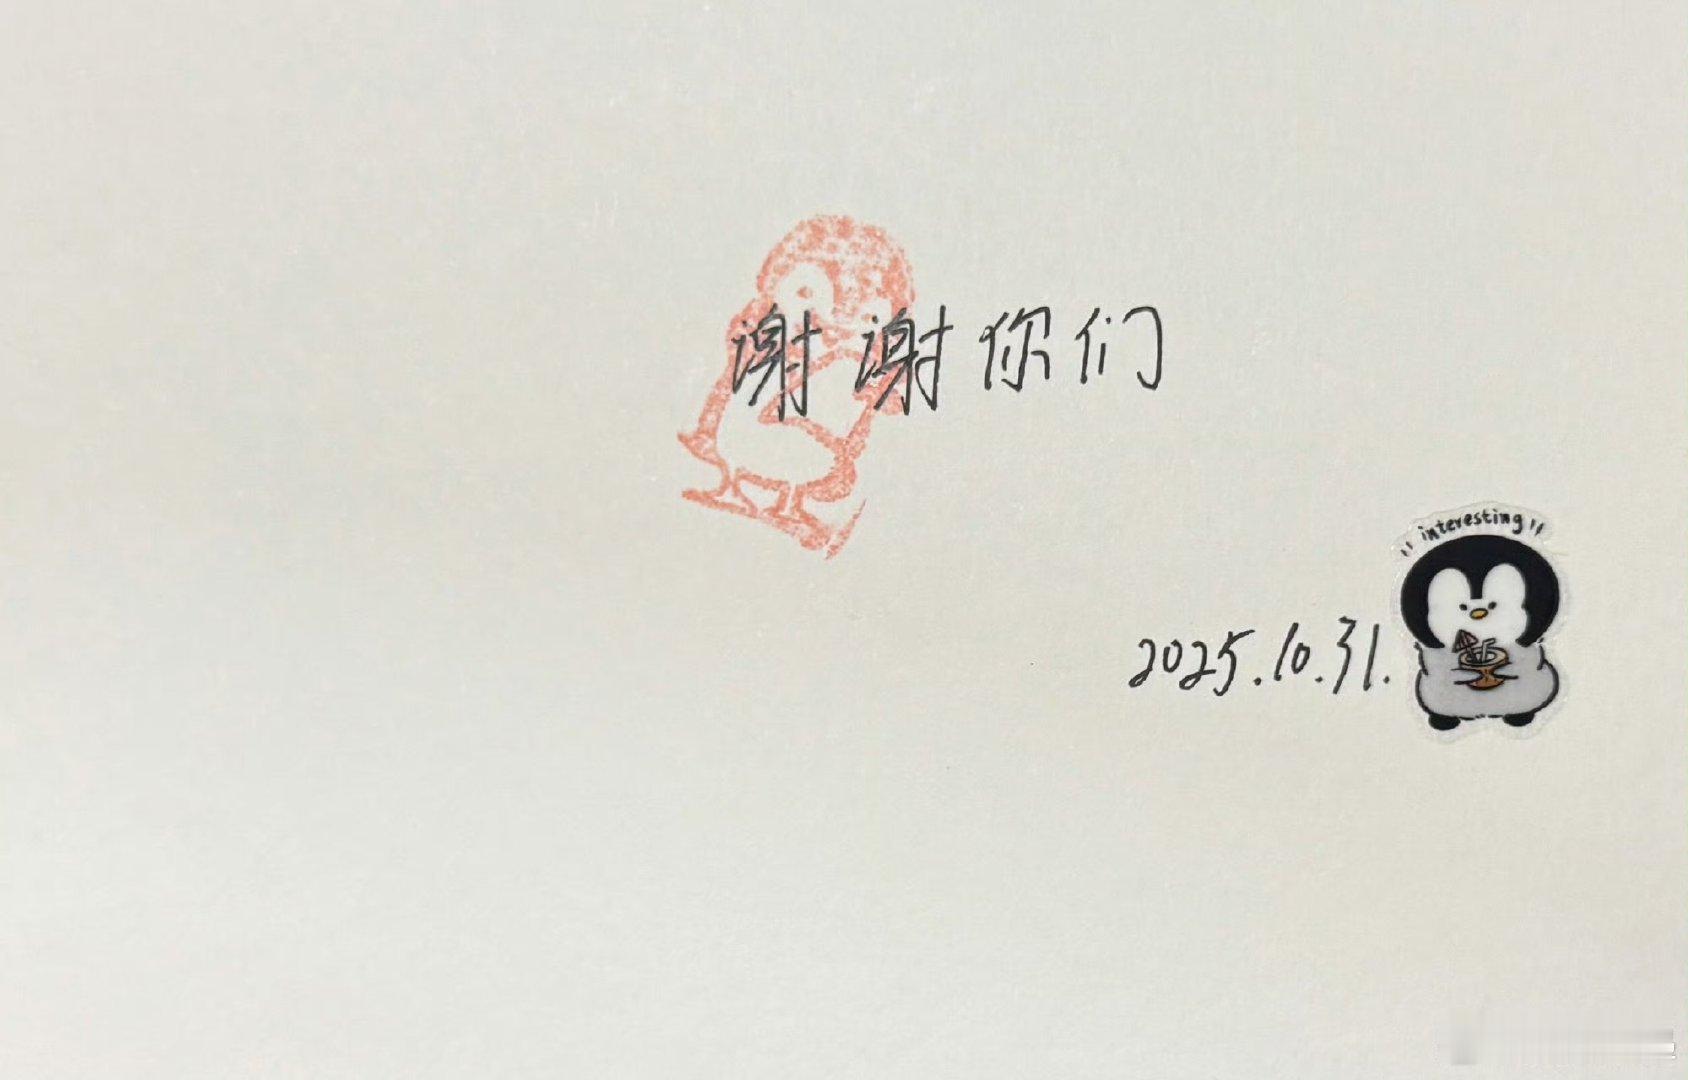 谢谢你们
interesting
2025.10.31.